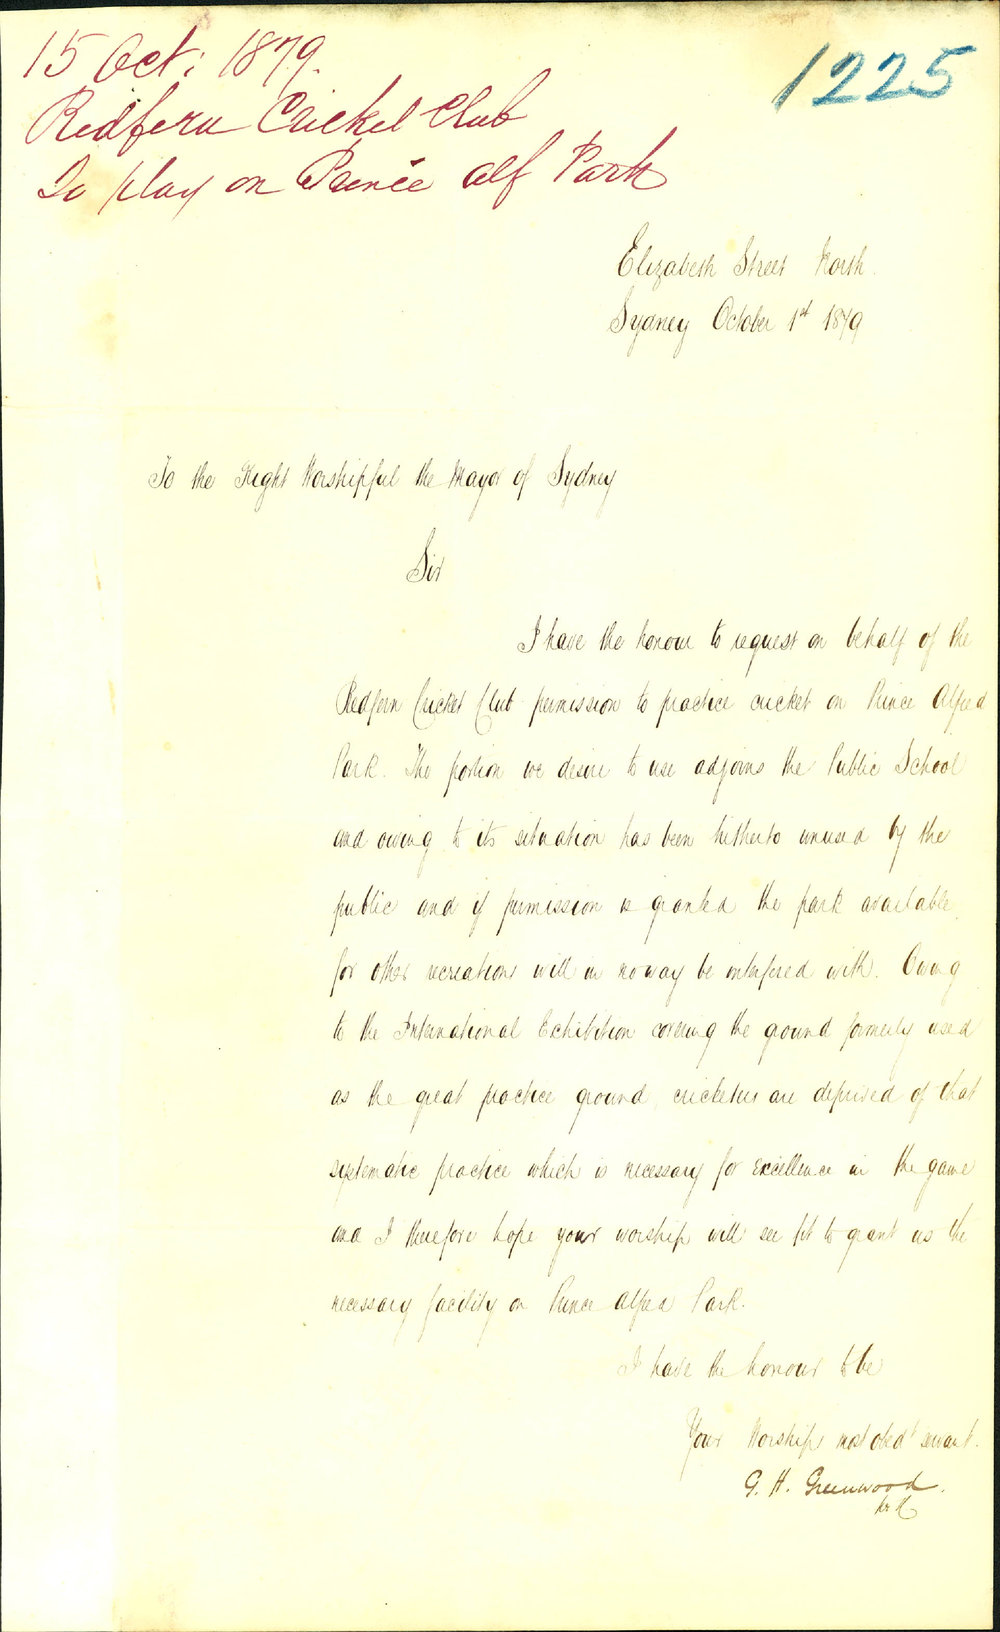 15 Oct: 1879.
1225
Redfern Cricket Club
To play on Prince Alf Park
Elizabeth Street North.
Sydney October 1st 1879
To the Right Worshipful the Mayor of Sydney
Sir
I have the honour to request on behalf of the
Redfern Cricket Club permission to practice cricket on Prince Alfred
Park. The portion we desire to use adjoins the Public School
and owing to its situation has been hitherto unused by the
public and if permission is granted the park available
for other recreations will in no way be interfered with. Owing
to the International Exhibition covering the ground formerly used
as the great practice ground, cricketers are deprived of that
systematic practice which is necessary for excellence in the game
and I therefore hope your worship will see fit to grant us the
necessary facility on Prince Alfred Park.
I have the honour to be
Your Worships most obedt servant.
G. H. Greenwood.